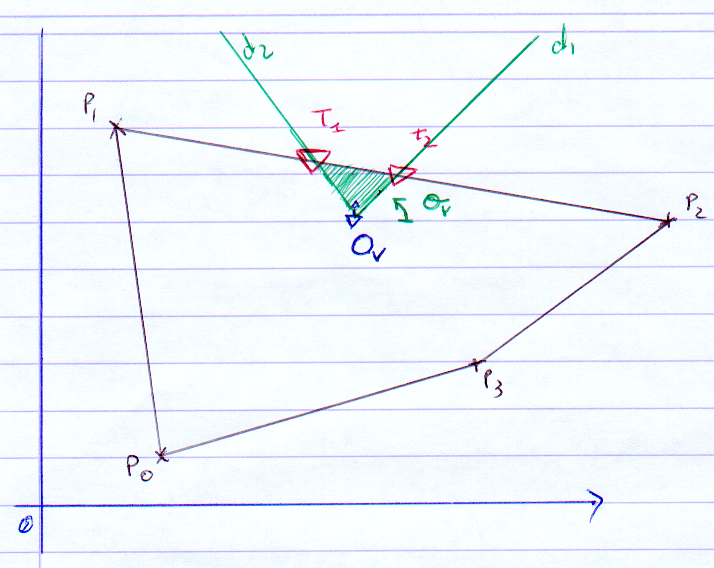 d2
d1
P1
T1
t2
θv
P2
Ov
P3
P0
0